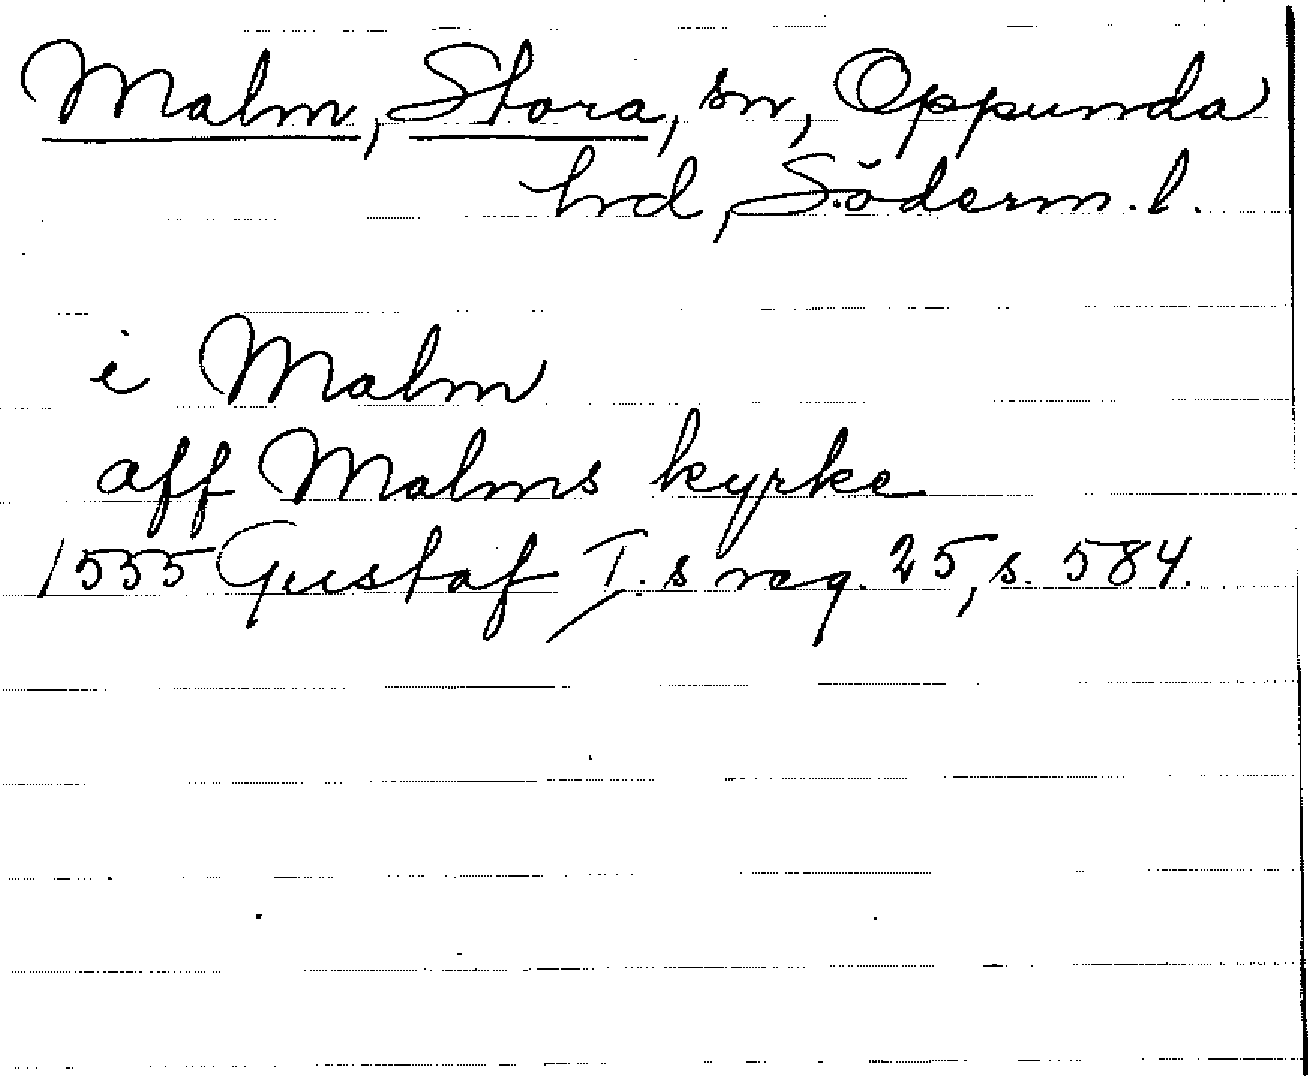 Malm, Stora, sn, Oppunda
hd, Söderm. l.
i Malm
aff Malms kyrke
1555 Gustaf I. s reg. 25, s. 584.